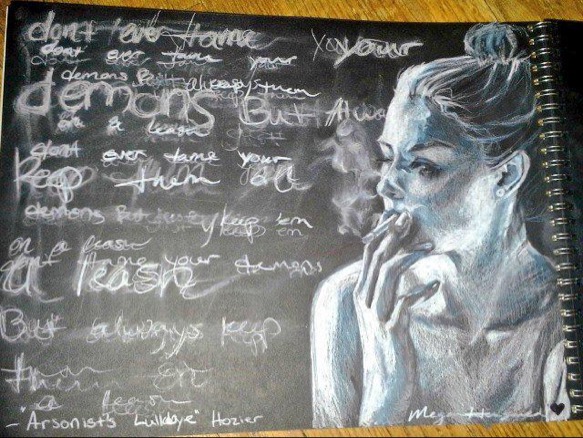 don't ever tame your
dont ever tame your
demons But always keep them
demons But Always
on a leash
dont ever tame your
Keep them on
demons But keep 'em
on a leash
dont ever tame your demons
a leash
But always keep
them on
a leash
- "Arsonist's Lullabye" Hozier
Megan